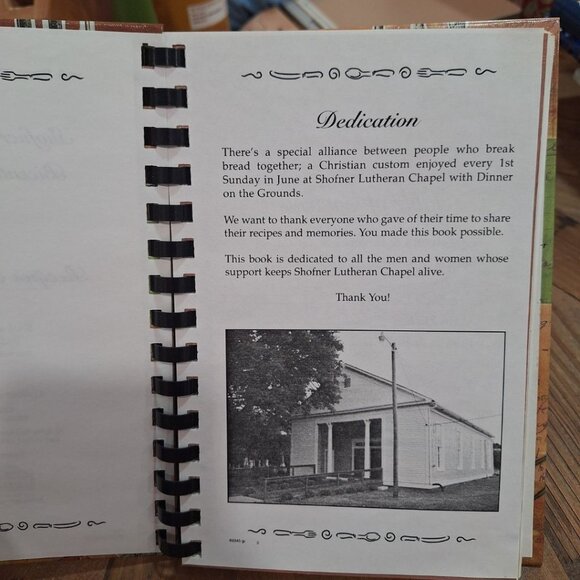 Dedication
There's a special alliance between people who break
bread together; a Christian custom enjoyed every 1st
Sunday in June at Shofner Lutheran Chapel with Dinner
on the Grounds.
We want to thank everyone who gave of their time to share
their recipes and memories. You made this book possible.
This book is dedicated to all the men and women whose
support keeps Shofner Lutheran Chapel alive.
Thank You!